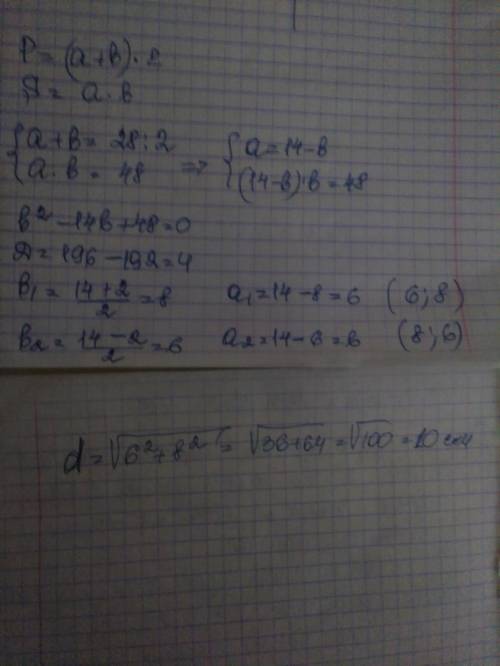 P = (a+b)·2
S = a·b
{ a+b = 28:2 => { a = 14-b
{ a·b = 48 { (14-b)·b = 48
b² - 14b + 48 = 0
D = 196 - 192 = 4
b₁ = (14+2)/2 = 8 a₁ = 14-8 = 6 (6; 8)
b₂ = (14-2)/2 = 6 a₂ = 14-6 = 6 (8; 6)
d = √(6²+8²) = √(36+64) = √100 = 10 см